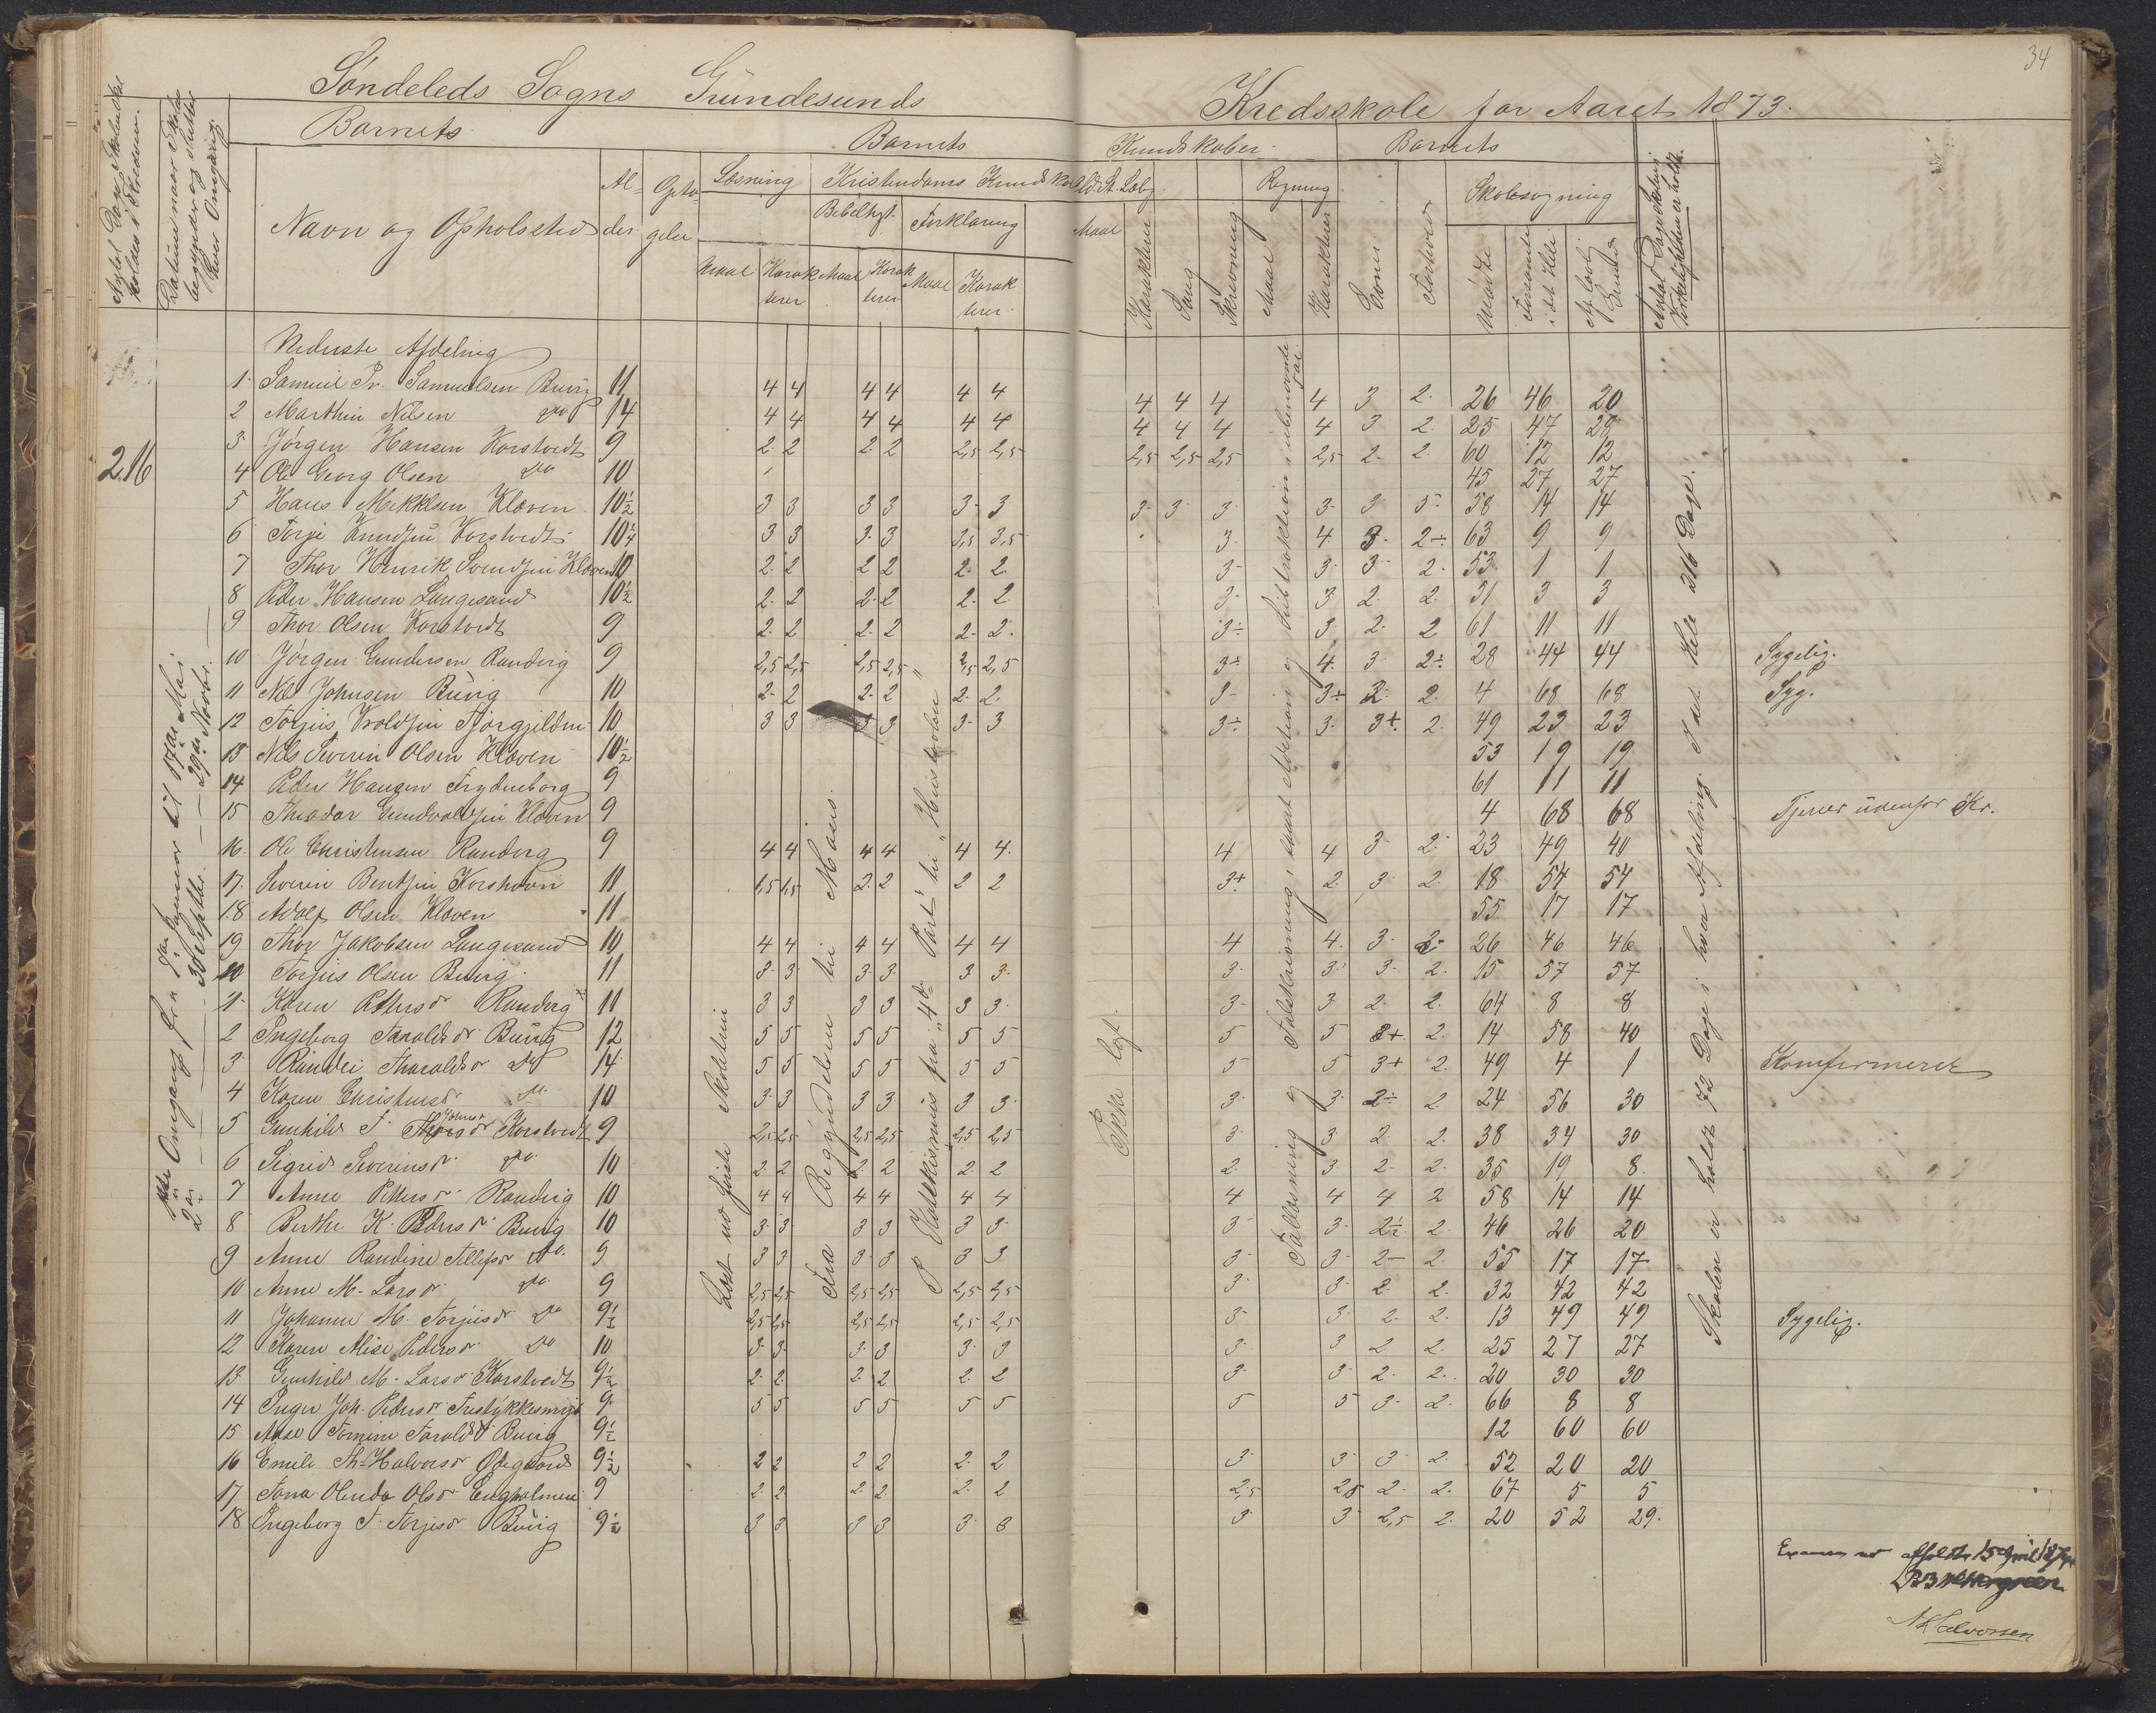 34
Søndeleds Sogns Gründesunds Kredsskole for Aaret 1873.
Barnets
Barnets
Kundskaber
Barnets
Navn og Opholssted
Al-
der
Læsning
Kristendoms Kundskab
Regning
Skolesøgning
Bibelhst.
Forklaring
Maal
Karakterer
Maal
Karakterer
Maal
Karakterer
Maal
Karakterer
Sang
Skrivning
Maal
Karakterer
Evner
Forhold
Mødte
Forsømte i det Hele
Af lovl. Grunde
Nederste Afdeling
216
1 Samuel Pr. Samuelsen Buvig 11 4 4 4 4 4 4 4 4 4 4 3 2 26 46 20
2 Marthin Nilsen do 14 4 4 4 4 4 4 4 4 4 4 3 2 25 47 28
3 Jørgen Hansen Korstvedt 9 2 2 2 2 2,5 2,5 2,5 2,5 2,5 2,5 2 2 60 12 12
4 Ole Georg Olsen do 10 45 27 27
5 Hans Mikkelsen Kloven 10½ 3 3 3 3 3 3 3 3 3 3 3 5 58 14 14
6 Torje Knudsen Korstvedt 10¼ 3 3 3 3 3,5 3,5 3 4 3 2÷ 63 9 9
7 Thor Henrik Svendsen Kloven 10 2 2 2 2 2 2 3 3 3 2 53 1 1
8 Peder Hansen Langesund 10½ 2 2 2 2 2 2 3 3 2 2 31 3 3
9 Thor Olsen Korstvedt 9 2 2 2 2 2 2 3÷ 3 2 2 61 11 11
10 Jørgen Gundersen Randvig 9 2,5 2,5 2,5 2,5 2,5 2,5 3÷ 4 3 2÷ 28 44 44 Sygelig.
11 Nils Johnsen Büvig 10 2 2 2 2 2 2 3 3÷ 2 2 4 68 68 Syg.
12 Torjus Vroldsen 10 3 3 3 3 3 3 3÷ 3 3+ 2 49 23 23
13 Nils Severin Olsen Kloven 10½ 53 19 19
14 Peder Hansen Frydenborg 9 61 11 11
15 Theodor Gundvaldsen Kloven 9 4 68 68 Tjener udenfor Kr.
16 Ole Christensen Randvig 9 4 4 4 4 4 4 4 4 3 2 23 49 40
17 Severin Bentsen Korshavn 11 1,5 1,5 2 2 2 2 3+ 2 3 2 18 54 54
18 Adolf Olsen Kloven 11 55 17 17
19 Thor Jakobsen Langesund 10 4 4 4 4 4 4 4 4 3 2 26 46 46
20 Torjus Olsen Buvig 11 3 3 3 3 3 3 3 3 3 2 15 57 57
1 Karen Pettersdr Randvig 11 3 3 3 3 3 3 3 3 2 2 64 8 8
2 Ingeborg Taraldsdr Buvig 12 5 5 5 5 5 5 5 5 3+ 2 14 58 40
3 Randei Tharaldsdr do 14 5 5 5 5 5 5 5 5 3+ 2 49 4 1 Konfirmeret
4 Karen Christensdr do 10 3 3 3 3 3 3 3 3 2÷ 2 24 56 30
5 Gunhild T. Johnsdr Korstvedt 9 2,5 2,5 2,5 2,5 2,5 2,5 3 3 2 2 38 34 30
6 Sigrid Severinsdr do 10 2 2 2 2 2 2 2 3 2 2 35 19 8
7 Anne Pettersdr Randvig 10 4 4 4 4 4 4 4 4 4 2 58 14 14
8 Berthe K. Pedersdr Buvig 10 3 3 3 3 3 3 3 3 2½ 2 46 26 20
9 Anne Randine Allefsdr do 9 3 3 3 3 3 3 3 3 2 2 55 17 17
10 Anne M. Larsdr do 9 2,5 2,5 2,5 2,5 2,5 2,5 3 3 2 2 32 42 42
11 Johanne M. Torjusdr do 9½ 2,5 2,5 2,5 2,5 2,5 2,5 3 3 2 2 13 49 49 Sygelig.
12 Karen Elise Pedersdr do 10 3 3 3 3 3 3 3 3 2 2 25 27 27
13 Gunhild M. Larsdr Korstvedt 9½ 2 2 2 2 2 2 3 3 2 2 20 30 30
14 Inger Joh. Pedersdr 9 5 5 5 5 5 5 5 5 3 2 66 8 8
15 Aase Tomine Taraldsdr Buvig 9½ 12 60 60
16 Emilie Th. Halvorsdr Ødegaard 9½ 2 2 2 2 2 2 3 3 3 2 52 20 20
17 Tona Olinda Olsdr Engholmen 9 2 2 2 2 2 2 2,5 2,5 2 2 67 5 5
18 Ingeborg T. Torjesdr Büvig 9½ 3 3 3 3 3 3 3 3 2,5 2 20 52 29
Fra Begyndelsen til Moses.
Ikke lært.
Skolen er holdt 72 Dage i hver Afdeling. I det Hele 216 Dage.
afholdt 15 April 1874
N Halvorsen